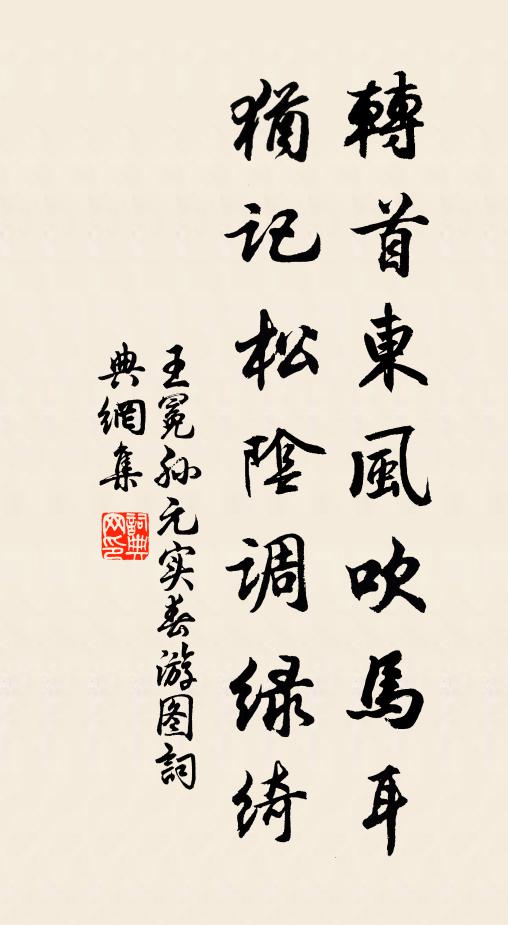 轉首東風吹馬耳
猶記松陰調绿綺
王冕孙元实春游图詞
典網集
詞典网印